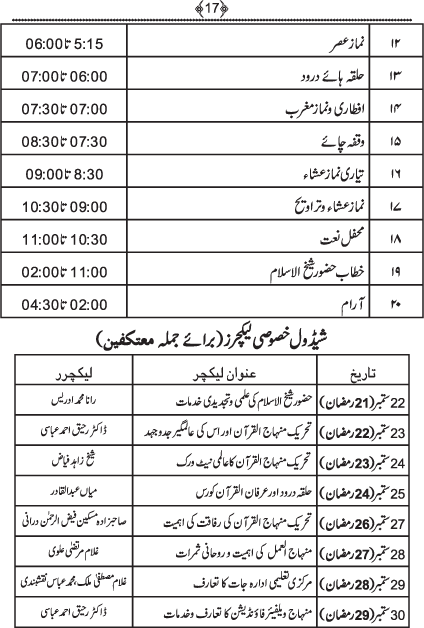 ﴿17﴾
۱۲ نماز عصر 5:15 تا 06:00
۱۳ حلقہ ہائے درود 06:00 تا 07:00
۱۴ افطاری و نماز مغرب 07:00 تا 07:30
۱۵ وقفہ چائے 07:30 تا 08:30
۱۶ تیاری نماز عشاء 8:30 تا 09:00
۱۷ نماز عشاء و تراویح 09:00 تا 10:30
۱۸ محفل نعت 10:30 تا 11:00
۱۹ خطاب حضور شیخ الاسلام 11:00 تا 02:00
۲۰ آرام 02:00 تا 04:30
شیڈول خصوصی لیکچرز (برائے جملہ معتکفین)
تاریخ عنوان لیکچر لیکچرر
22 ستمبر (21 رمضان) حضور شیخ الاسلام کی علمی و تجدیدی خدمات رانا محمد ادریس
23 ستمبر (22 رمضان) تحریک منہاج القرآن اور اس کی عالمگیر جدوجہد ڈاکٹر رحیق احمد عباسی
24 ستمبر (23 رمضان) تحریک منہاج القرآن کا عالمی نیٹ ورک شیخ زاہد فیاض
25 ستمبر (24 رمضان) حلقہ درود اور عرفان القرآن کورس میاں عبدالقادر
27 ستمبر (26 رمضان) تحریک منہاج القرآن کی رفاقت کی اہمیت صاحبزادہ مسکین فیض الرحمٰن درانی
28 ستمبر (27 رمضان) منہاج العمل کی اہمیت و روحانی ثمرات غلام مرتضیٰ علوی
29 ستمبر (28 رمضان) مرکزی تعلیمی ادارہ جات کا تعارف غلام مصطفیٰ ملک، محمد عباس نقشبندی
30 ستمبر (29 رمضان) منہاج ویلفیئر فاؤنڈیشن کا تعارف و خدمات ڈاکٹر رحیق احمد عباسی